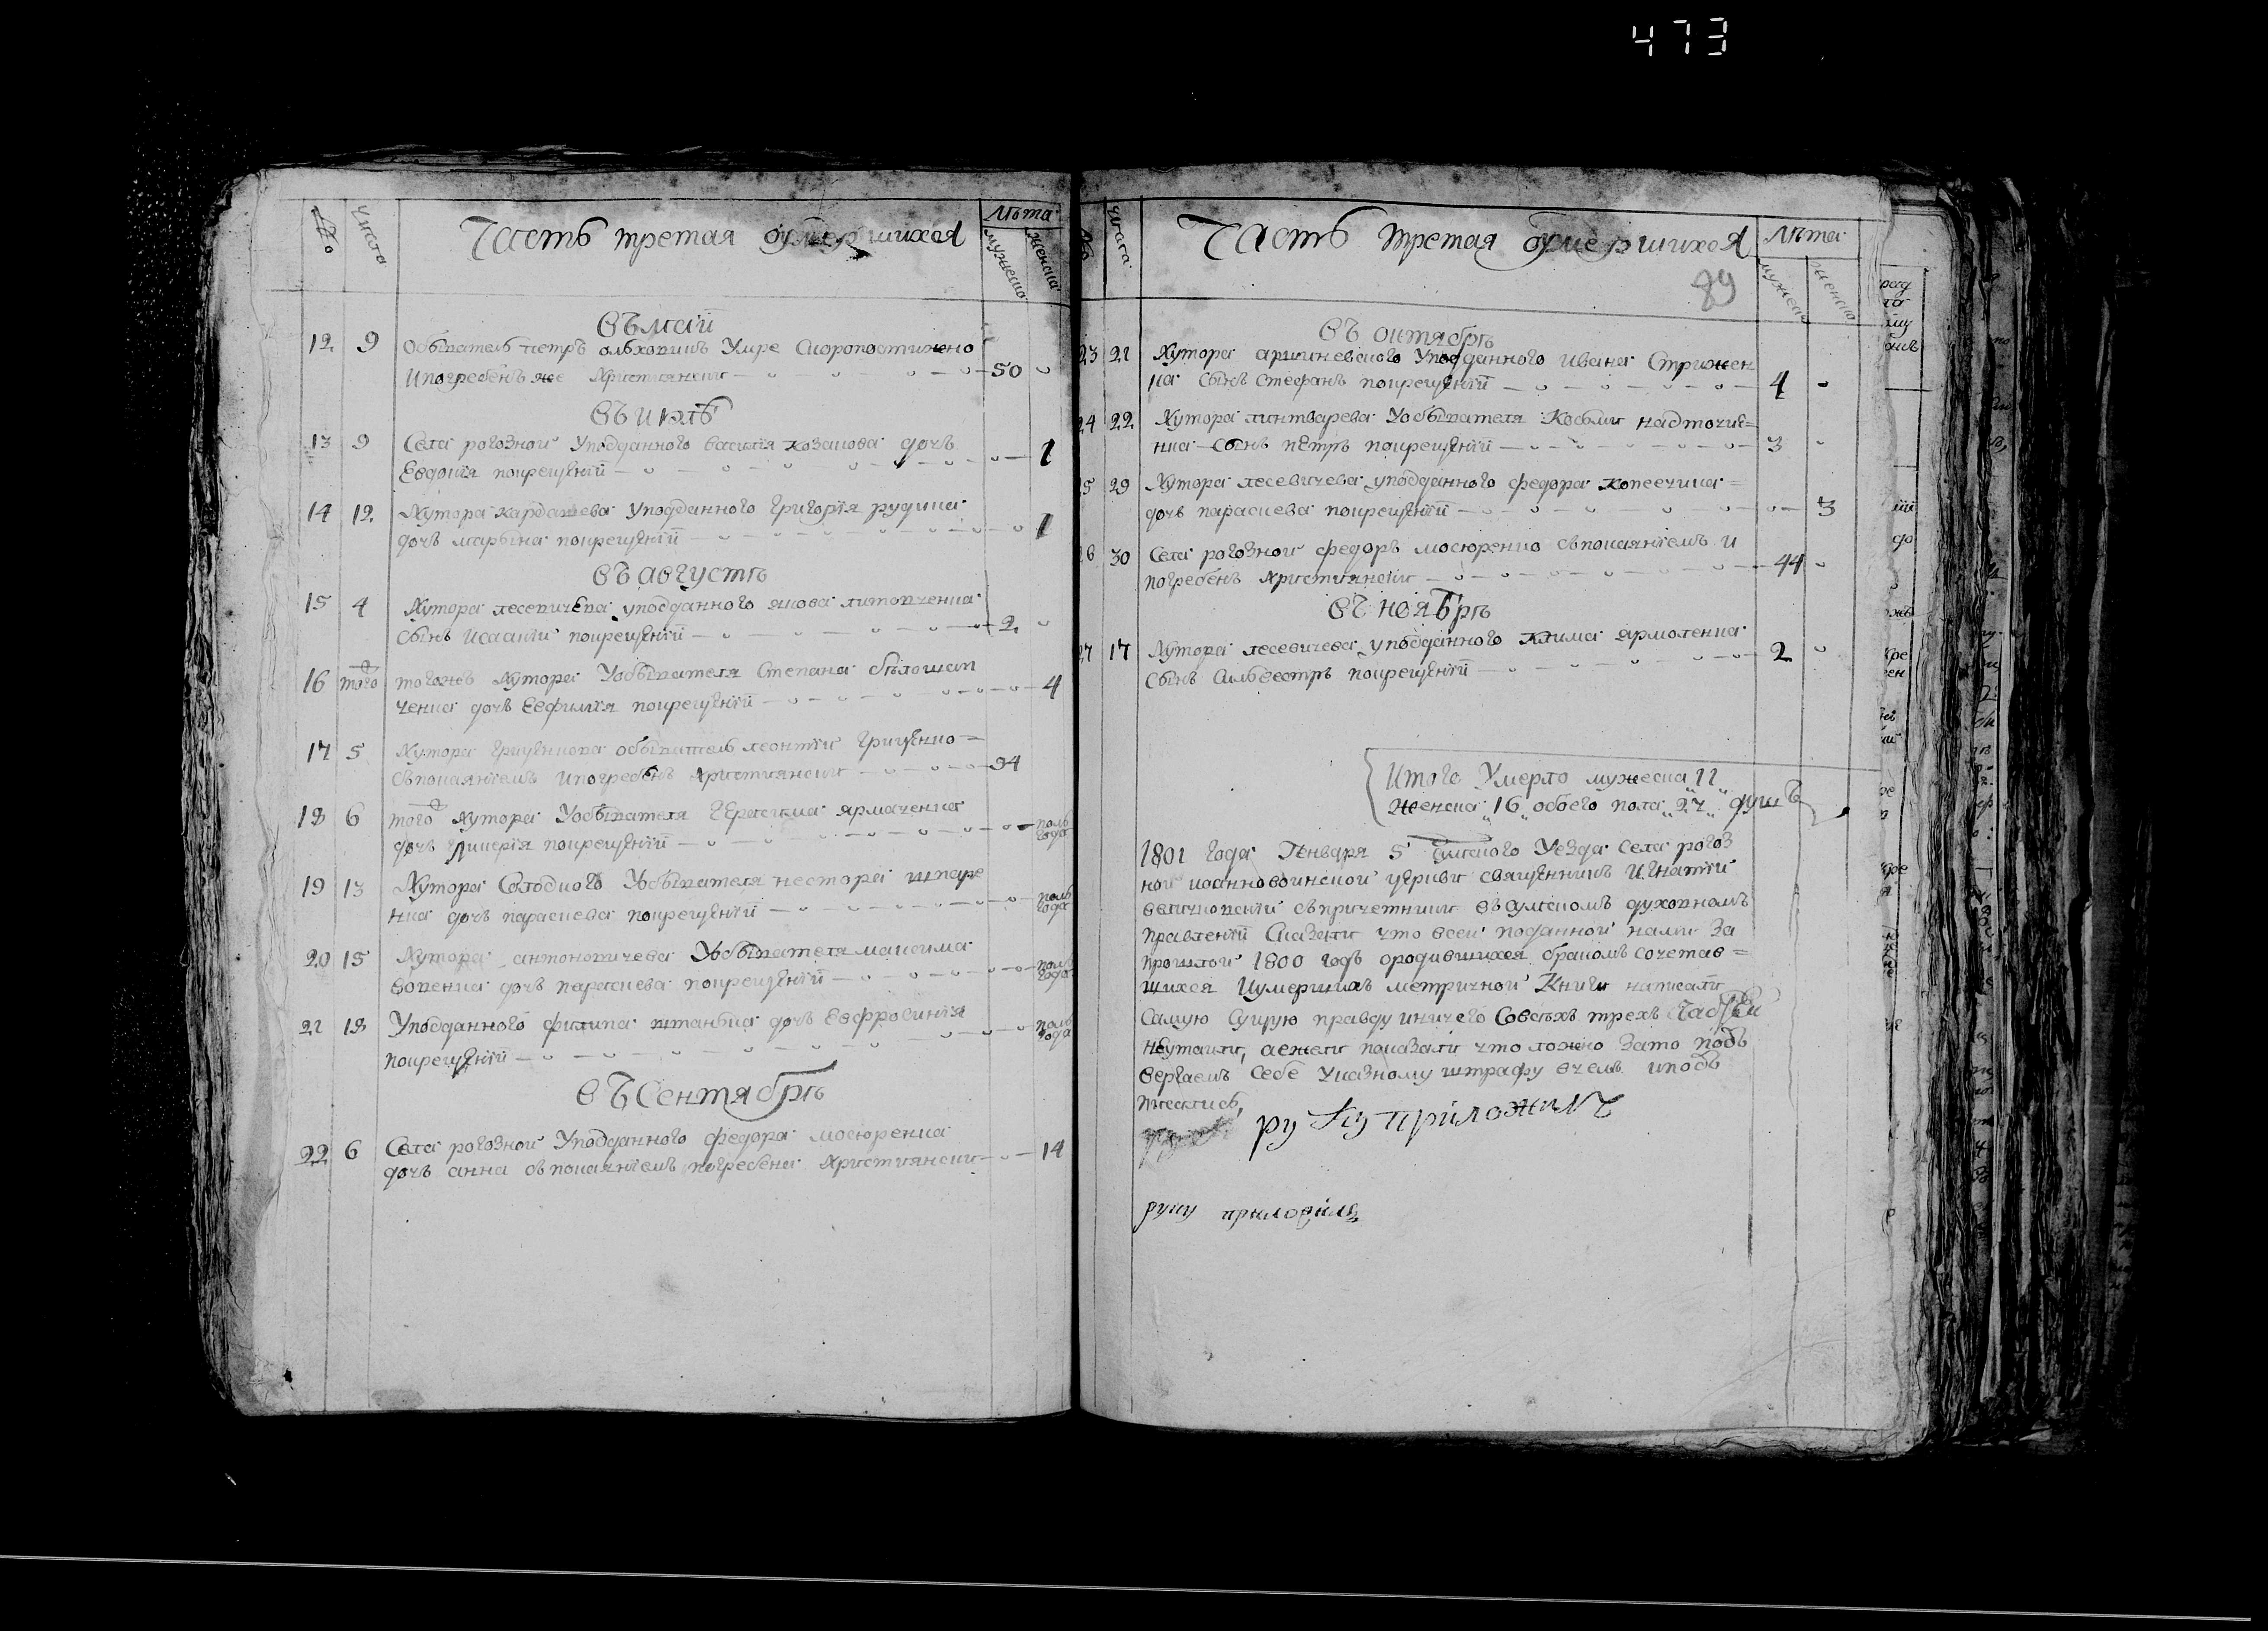 473
№ Число Часть третая оумершихся Лѣта мужеска женска
въ маїи
12 9 Обыватель петръ ольховикъ Умре Скоропостижено
и погребенъ же християнски 50
въ июлѣ
13 9 Села рогозной Уподданного василїя козакова дочь
Евдокїя покрещенїи 1
14 12 Хутора кардашева уподданного григорїя рудика
дочь марѳина покрещенїи 1
въ августѣ
15 4 Хутора лесевичева уподданного якова литовченка
сынъ Исаакїй покрещенїи 2
16 того тогожъ Хутора Уобывателя Степана бѣлошап
ченка дочь Евфимїя покрещенїи 4
17 5 Хутора Грищенкова обыватель леонтїй Грищенко
съпокаянїемъ и погребенъ християнски 34
18 6 того Хутора Уобывателя Герасима ярмаченка
дочь Гликерїя покрещенїи полъ года
19 13 Хутора Солодкого Уобывателя нестора шпаре
нка дочь параскева покрещенїи полъ года
20 15 Хутора антоновичева Уобывателя максима
вовенка дочь параскева покрещенїи полъ года
21 18 Уподданного филипа штанька дочь Евфросинїя
покрещенїи полъ года
въ Сентябрѣ
22 6 Села рогозной Уподданного федора мосюренка
дочь анна съпокаянїемъ погребена християнски 14
Число Часть третая оумершихся Лѣта мужеско женско
89
въ октябрѣ
23 21 Хутора Уподданного ивана Стрижен
ка сынъ стефанъ покрещенїи 4
24 22 Хутора линтварева Уобывателя Космы надточїе=
нка Сынъ петръ покрещенїи 3
25 29 Хутора лесевичева уподданного федора копеечика=
дочь параскева покрещенїи 3
26 30 Села рогозной федоръ мосюренко съпокаянїемъ и
погребенъ християнски 44
въ ноябрѣ
27 17 Хутора лесевичева уподданного клима ярмоленка
сынъ Сильвестръ покрещенїи 2
Итого Умерло мужеска 11
женска 16 обоего пола 27 душъ
1801 года Генваря 5 Сумского Уезда села рогоз
ной иоанновоинской церкви священникъ Игнатїй
съпричетники въсумскомъ духовномъ
правленїи Сказали что всей поданной нами за
прошлой 1800 годъ ородившихся бракомъ сочетав=
шихся Иумершихъ метричной Книги написали
Самую Сущую правду иничего Совсѣхъ трехъ Частей
неутаили, аежели показали что ложно зато подъ
вергаемъ себе Указному штрафу вчемъ иподъ
писались,
руку приложилъ
руку приложилъ